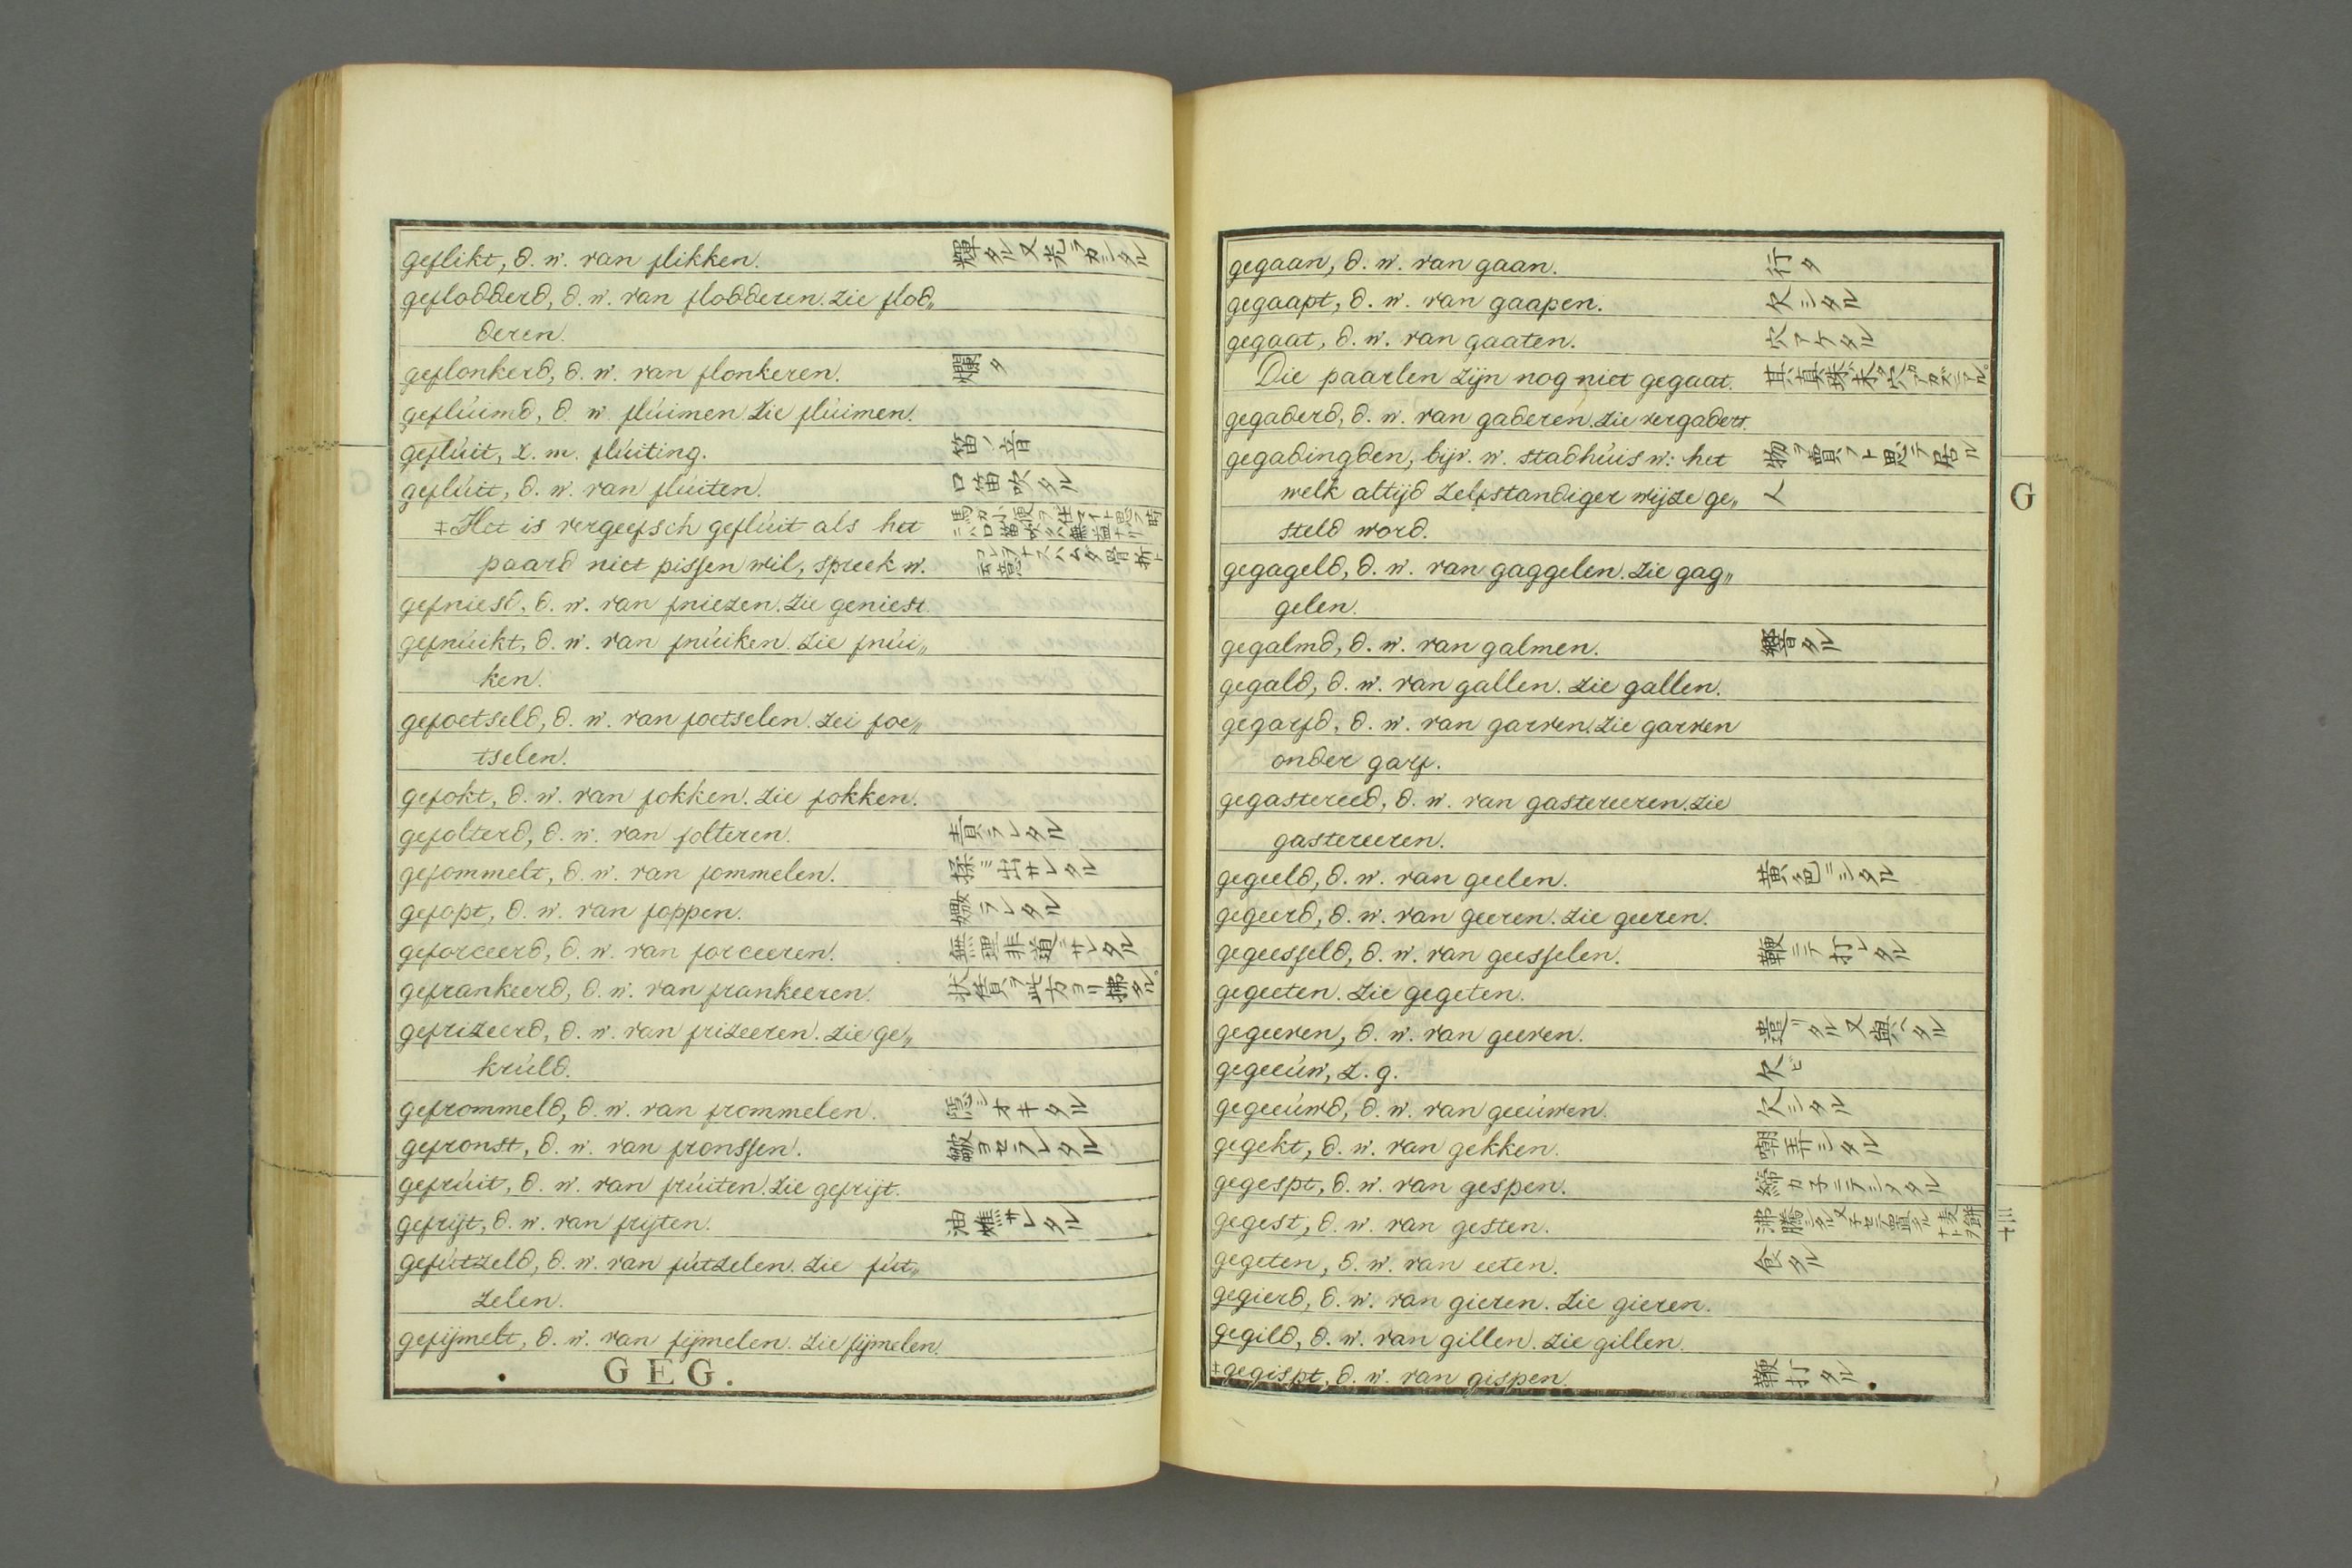 geflikt, d. w. van flikken. 輝タル又光ラカシタル
geflodderd, d. w. van flodderen. zie flod„
deren.
geflonkerd, d. w. van flonkeren. 爛タ
geflúimd, d. w. flúimen zie flúimen.
geflúit, z. m. flúiting. 笛ノ音
geflúit, d. w. van flúiten. 口笛吹タル
‡Het is vergeefsch geflúit als het 馬カ小便ヲ仕マイト思フ時ニハ口笛吹クハ無益ナリ
paard niet pissen wil, spreek w.
gefniesd, d. w. van fniezen. zie geniest.
gefnúikt, d. w. van fnúiken. zie fnúi„
ken.
gefoetseld, d. w. van foetselen. zei foe„
tselen.
gefokt, d. w. van fokken. zie fokken.
gefolterd, d. w. van folteren. 責ラレタル
gefommelt, d. w. van fommelen. 揉ミ出サレタル
gefopt, d. w. van foppen. ラレタル
geforceerd, d. w. van forceeren. 無理非道ニサレタル
gefrankeerd, d. w. van frankeeren. 状賃ヲ此方ヨリ拂タル。
gefrizeerd, d. w. van frizeeren. zie ge„
krúld.
gefrommeld, d. w. van frommelen. 隠シオキタル
gefronst, d. w. van fronssen. 皺ヨセラレタル
gefrúit, d. w. van frúiten. zie gefrijt.
gefrijt, d. w. van frijten. 油煠サレタル
gefútzeld, d. w. van fútzelen. zie fút„
zelen.
gefijmelt, d. w. van fijmelen. zie fijmelen.
GEG.
gegaan, d. w. van gaan. 行タ
gegaapt, d. w. van gaapen. 欠シタル
gegaat, d. w. van gaaten. 穴アケタル
Die paarlen zijn nog niet gegaat. 其真珠未タ穴カアカズニアル。
gegaderd, d. w. van gaderen. zie vergadert.
gegadingden, bijv. w. stadhúis w: het 物ヲ買フト思テ居ル
welk altijd zelfstandiger wijze ge„ 人
steld word.
gegageld, d. w. van gaggelen. zie gag„
gelen.
gegalmd, d. w. van galmen. 響タル
gegald, d. w. van gallen. zie gallen.
gegarfd, d. w. van garven. zie garven
onder garf.
gegastereed, d. w. van gastereeren. zie
gastereeren.
gegeeld, d. w. van geelen. 黄色ニシタル
gegeerd, d. w. van geeren. zie geeren.
gegeesseld, d. w. van geesselen. 鞭ニテ打レタル
gegeeten. zie gegeten.
gegeeven, d. w. van geeven. 遣リタル又與ヘタル
gegeeúw, z. g. 欠ビ
gegeeúwd, d. w. van geeúwen. 欠シタル
gegekt, d. w. van gekken. 嘲弄シタル
gegespt, d. w. van gespen. 締カ子ニテシメタル
gegest, d. w. van gesten.
gegeten, d. w. van eeten. 食タル
gegierd, d. w. van gieren. zie gieren.
gegild, d. w. van gillen. zie gillen.
‡gegispt, d. w. van gispen. 鞭打タル
G